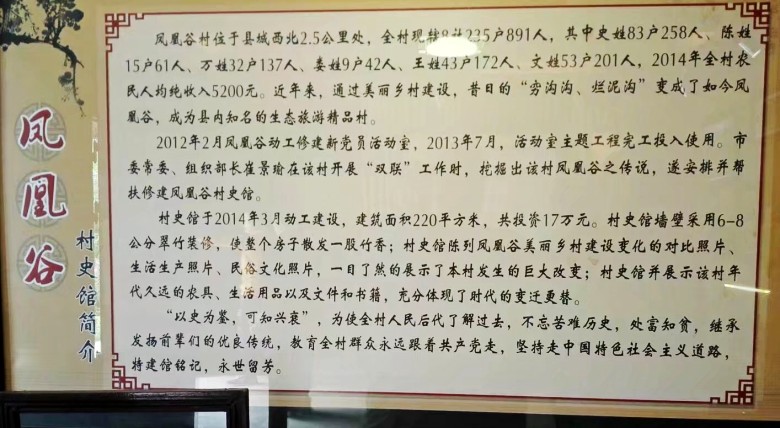 凤凰谷
村史馆简介
凤凰谷村位于县城西北2.5公里处，全村现辖8社235户891人，其中史姓83户258人、陈姓
15户61人、万姓32户137人、娄姓9户42人、王姓43户172人、文姓53户201人，2014年全村农
民人均纯收入5200元。近年来，通过美丽乡村建设，昔日的“穷沟沟、烂泥沟”变成了如今凤
凰谷，成为县内知名的生态旅游精品村。
2012年2月凤凰谷动工修建新党员活动室，2013年7月，活动室主题工程完工投入使用。市
委常委、组织部长崔景瑜在该村开展“双联”工作时，挖掘出该村凤凰谷之传说，遂安排并帮
扶修建凤凰谷村史馆。
村史馆于2014年3月动工建设，建筑面积220平方米，共投资17万元。村史馆墙壁采用6-8
公分翠竹装修，使整个房子散发一股竹香；村史馆陈列凤凰谷美丽乡村建设变化的对比照片、
生活生产照片、民俗文化照片，一目了然的展示了本村发生的巨大改变；村史馆并展示该村年
代久远的农具、生活用品以及文件和书籍，充分体现了时代的变迁更替。
“以史为鉴，可知兴衰”，为使全村人民后代了解过去，不忘苦难历史，处富知贫，继承
发扬前辈们的优良传统，教育全村群众永远跟着共产党走，坚持走中国特色社会主义道路，
特建馆铭记，永世留芳。